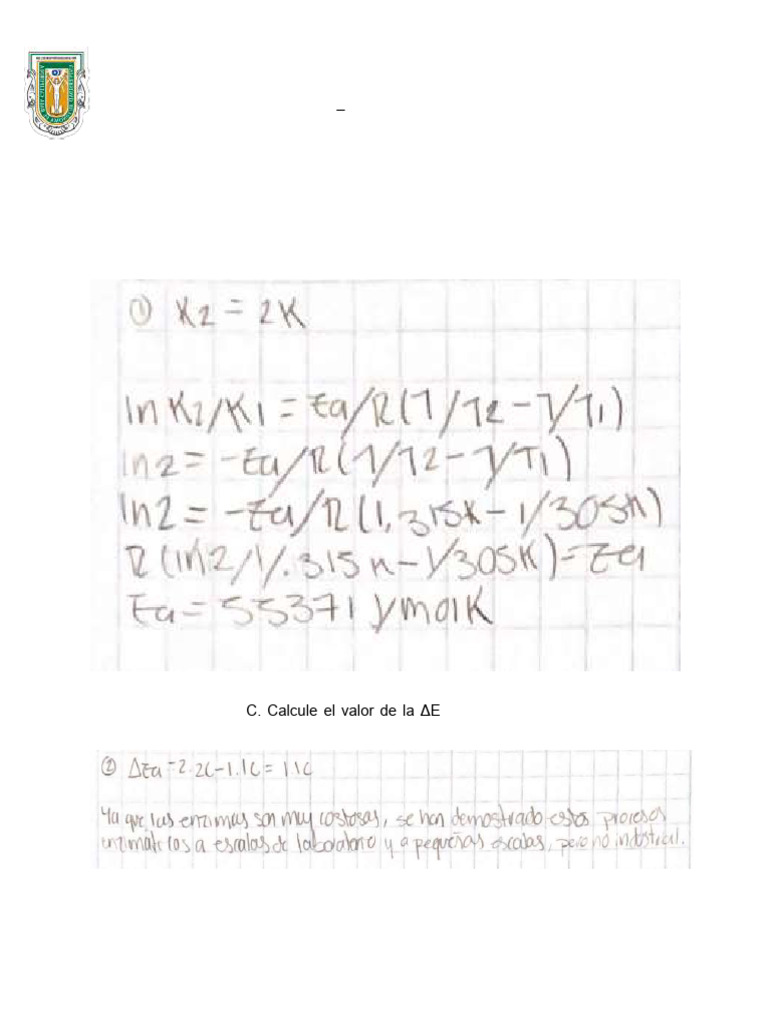 –
① K2 = 2K
ln K2/K1 = Ea/R(1/T2 - 1/T1)
ln2 = -Ea/R(1/T2 - 1/T1)
ln2 = -Ea/R(1,315K - 1/305K)
R(ln2/1/.315K - 1/305K) = Ea
Ea = 55371 J/molK
C. Calcule el valor de la ΔE
② ΔEa = 2.2C - 1.1C = 1.1C
Ya que las enzimas son muy costosas, se han demostrado estos procesos
enzimáticos a escalas de laboratorio y a pequeñas escalas, pero no industrial.